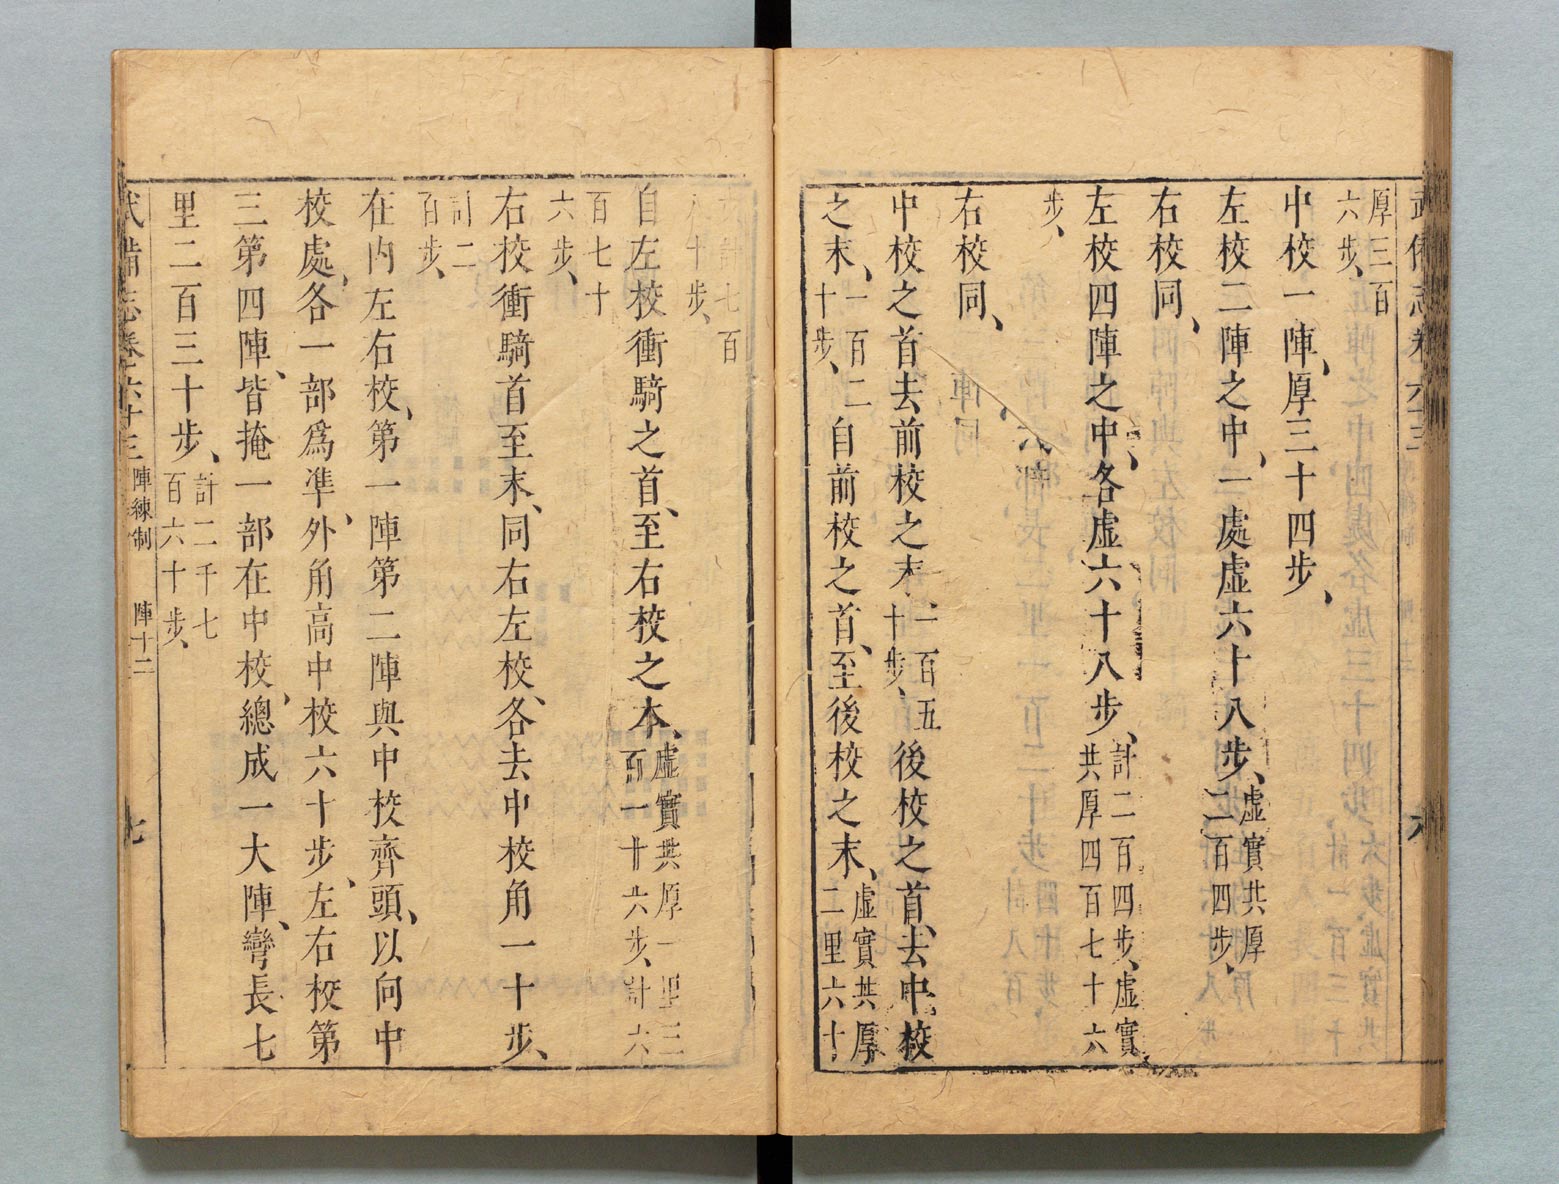 武備志卷六十三
厚三百
六步、
中校一陣、厚三十四步、
左校二陣之中、一處虛六十八步、虛實共厚
二百四步、
右校同、
左校四陣之中、各虛六十八步、計二百四步、虛實
共厚四百七十六
步、
右校同、
中校之首去前校之末一百五
十步、後校之首、去中校
之末、一百二
十步、自前校之首、至後校之末、虛實共厚
二里六十
計七百
十步、
自左校衝騎之首、至右校之本、虛實共厚一里三
百一十六步、計六
百七十
六步、
右校衝騎首至末、同右左校、各去中校角一十步、
計二
百步、
在內左右校、第一陣第二陣與中校齊頭、以向中
校處、各一部爲準、外角高中校六十步、左右校第
三第四陣、皆掩一部在中校、總成一大陣、彎長七
里二百三十步、計二千七
百六十步、
武備志卷六十三 陣練制 陣十二 七